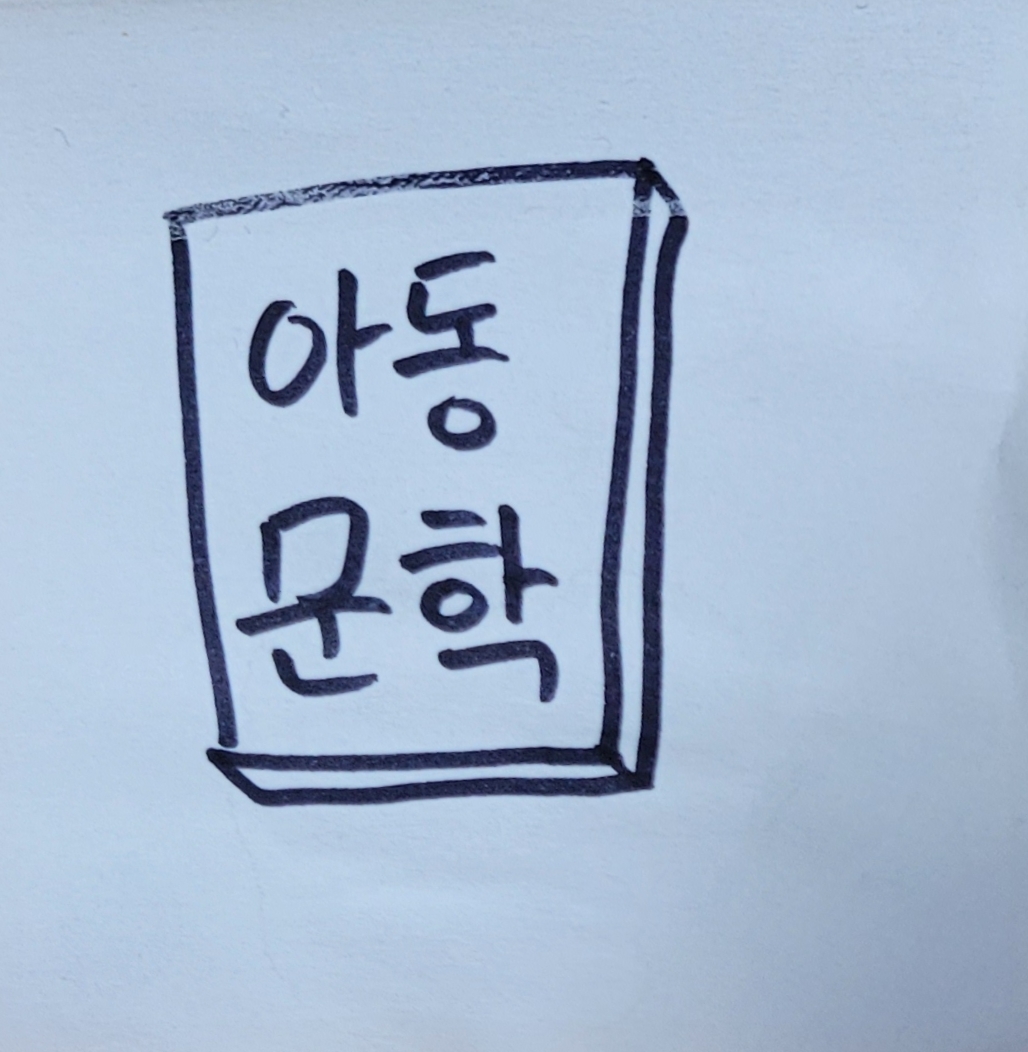 아동
문학